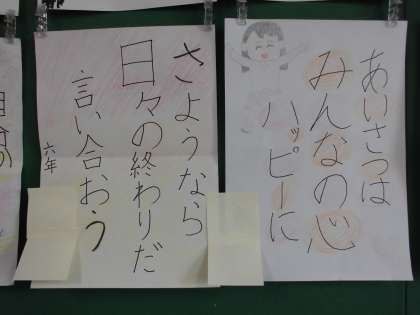 あいさつは
みんなの心
ハッピーに
さようなら
日々の終わりだ
言い合おう
六年